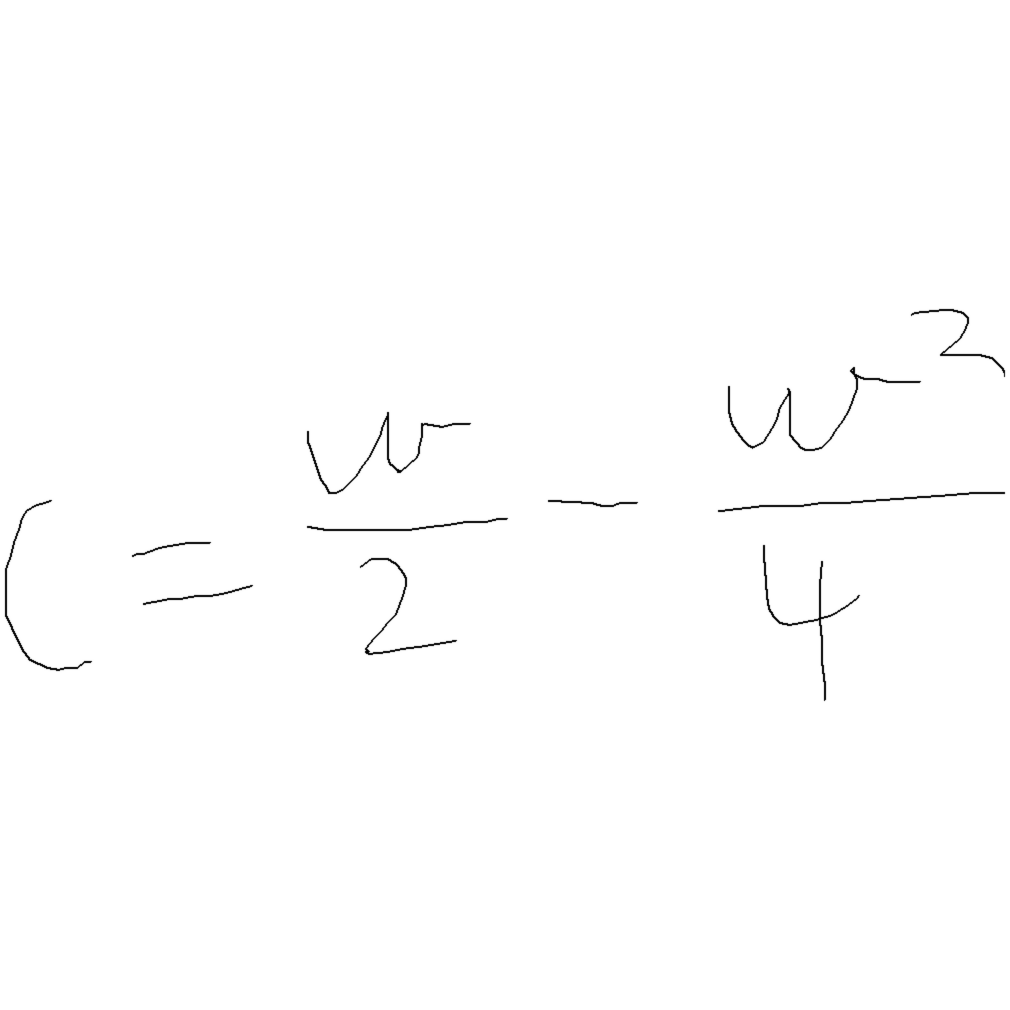 C = \frac{w}{2} - \frac{w^2}{4}